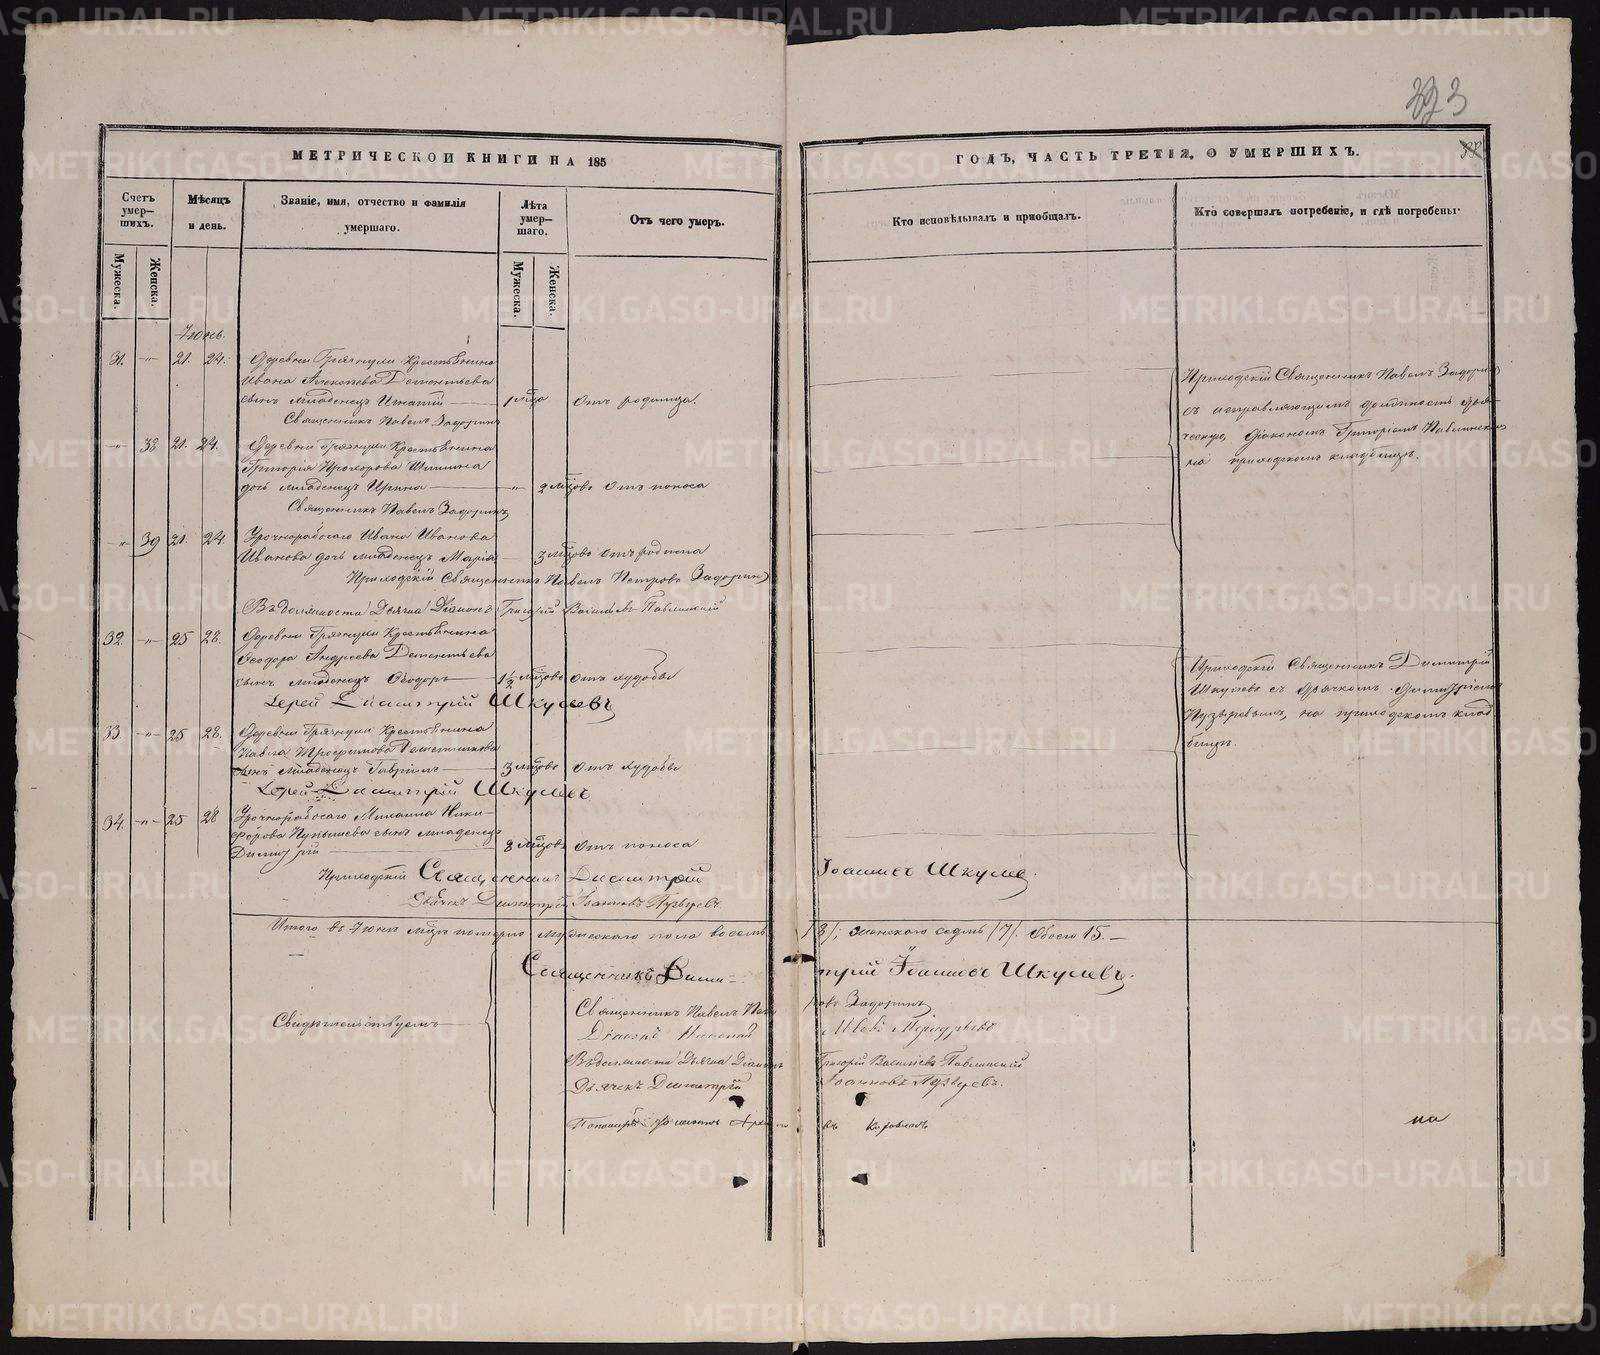 323
МЕТРИЧЕСКОЙ КНИГИ НА 185
ГОДЪ, ЧАСТЬ ТРЕТІЯ, О УМЕРШИХЪ.
Счетъ умер-шихъ.
Мѣсяцъ и день.
Званіе, имя, отчество и фамилія умершаго.
Лѣта умер-шаго.
Отъ чего умеръ.
Кто исповѣдывалъ и пріобщалъ.
Кто совершалъ погребеніе, и гдѣ погребены.
Мужеска.
Женска.
Мужеска.
Женска.
Іюнь.
31. -"- 21. 24. Деревни Грязнухи Крестьянина
Ивана Алексѣева Дементьева
сынъ младенецъ Игнатій 1 мѣсяца Отъ родимца.
Священникъ Павелъ Задоринъ
-"- 38 21. 24. Деревни Грязнухи Крестьянина
Григорія Прохорова Шишина
дочь младенецъ Ирина -"- 2 мѣсяцовъ Отъ поноса
Священникъ Павелъ Задоринъ
-"- 39 21. 24. Урочнорабочаго Ивана Иванова
Иванова дочь младенецъ Марія 3 мѣсяцовъ Отъ родимца
Приходскій Священникъ Павелъ Петровъ Задоринъ
Въ должности Дьячка Діаконъ Григорій Васильевъ Павлинскій
Приходскій Священникъ Павелъ Задоринъ
съ исправляющимъ должность дья-
ческую, Діакономъ Григоріемъ Павлинскимъ
на приходскомъ кладбищѣ.
32. -"- 25 28. Деревни Грязнухи Крестьянина
Ѳеодора Андреева Дементьева
сынъ младенецъ Ѳеодоръ 1 1/2 мѣсяцовъ Отъ худобы
Іерей Димитрій Шкулевъ
33. -"- 25 28. Деревни Грязнухи Крестьянина
Павла Трофимова
сынъ младенецъ Гавріилъ 3 мѣсяцовъ Отъ худобы
Іерей Димитрій Шкулевъ
34. -"- 25 28 Урочнорабочаго Михаила Ники-
форова сынъ младенецъ
Димитрій 8 мѣсяцовъ Отъ поноса
Приходскій Священникъ Димитрій Іоанновъ Шкулевъ.
Дьячекъ Димитрій Іоанновъ Пузыревъ.
Приходскій Священникъ Димитрій
Шкулевъ съ дьячкомъ Димитріемъ
Пузыревымъ, на приходскомъ клад-
бищѣ.
Итого въ Іюнѣ мѣсяцѣ померло Мужескаго пола восемь /8/, женскаго седмь /7/. Обоего 15.
Священникъ Дими-трій Іоанновъ Шкулевъ.
Свидѣтельствуемъ
Священникъ Павелъ Петровъ Задоринъ
Діаконъ Николай
Въ должности Дьячка Діаконъ Григорій Васильевъ Павлинскій
Дьячекъ Димитрій Іоанновъ Пузыревъ.
Пономарь
на
METRIKI.GASO-URAL.RU